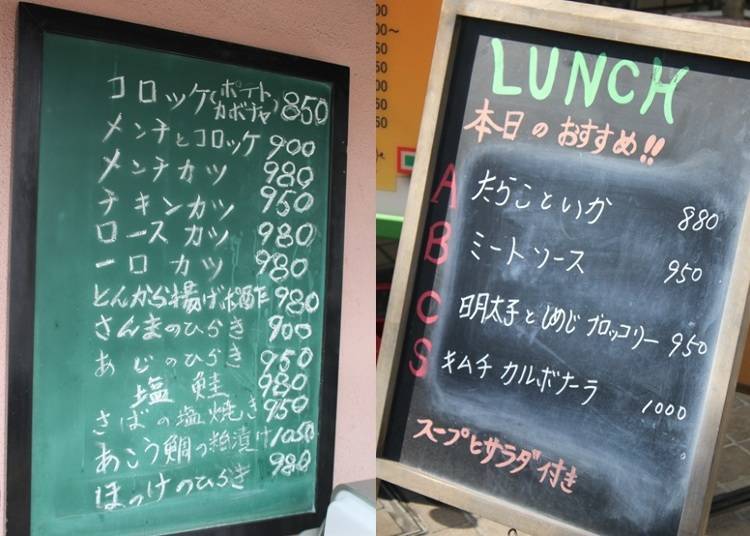 コロッケ(ポテト カボチャ) 850
メンチとコロッケ 900
メンチカツ 980
チキンカツ 950
ロースカツ 980
一口カツ 980
とんから揚げポン酢 980
さんまのひらき 900
あじのひらき 950
塩鮭 980
さばの塩焼き 950
あこう鯛の粕漬け 1050
ほっけのひらき 980
LUNCH
本日のおすすめ!!
A たらこといか 880
B ミートソース 950
C 明太子としめじブロッコリー 950
S キムチカルボナーラ 1000
スープとサラダ付き